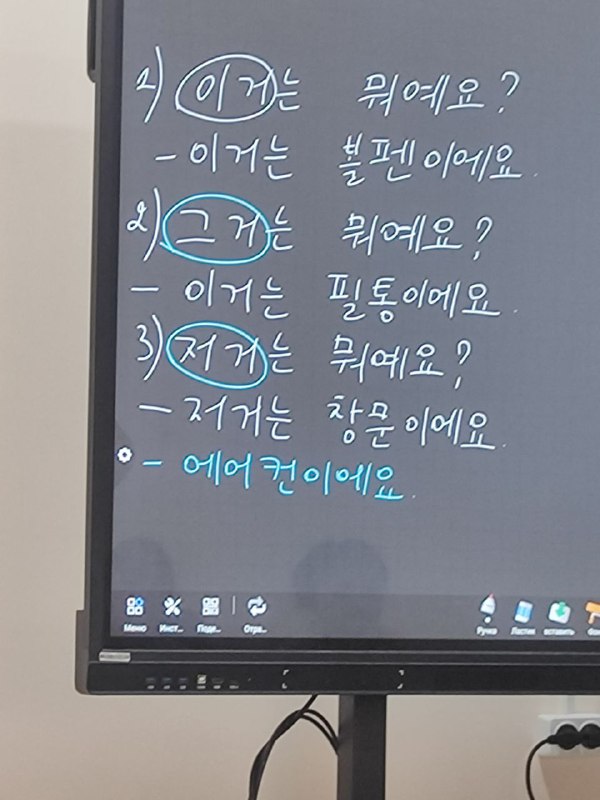 1) 이거는 뭐예요?
- 이거는 볼펜이에요.
2) 그거는 뭐예요?
- 이거는 필통이에요.
3) 저거는 뭐예요?
- 저거는 창문이에요.
- 에어컨이에요.
Меню Инст... Поде... Отра... Ручка Ластик вставить Фон